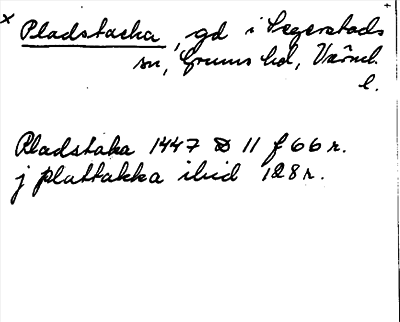 x Pladstacka, gd i Segerstads
sn, Grums hd, Värml.
l.
Pladstaka 1447 D 11 f 66 r.
j plattakka ibid 128 r.